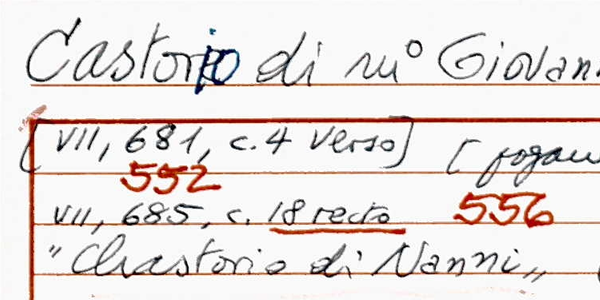 Castorio di m° Giovan
[VII, 681, c.4 verso] [
552
VII, 685, c. 18 recto 556
"Chastorio di Nanni"